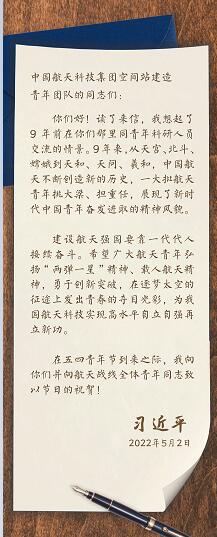 中国航天科技集团空间站建造
青年团队的同志们：
你们好！读了来信，我想起了
9年前在你们那里同青年科研人员
交流的情景。9年来，从天宫、北斗、
嫦娥到天和、天问、羲和，中国航
天不断创造新的历史，一大批航天
青年挑大梁、担重任，展现了新时
代中国青年奋发进取的精神风貌。
建设航天强国要靠一代代人
接续奋斗。希望广大航天青年弘
扬“两弹一星”精神、载人航天精
神，勇于创新突破，在逐梦太空的
征途上发出青春的夺目光彩，为我
国航天科技实现高水平自立自强再
立新功。
在五四青年节到来之际，我向
你们并向航天战线全体青年同志致
以节日的祝贺！
习近平
2022年5月2日